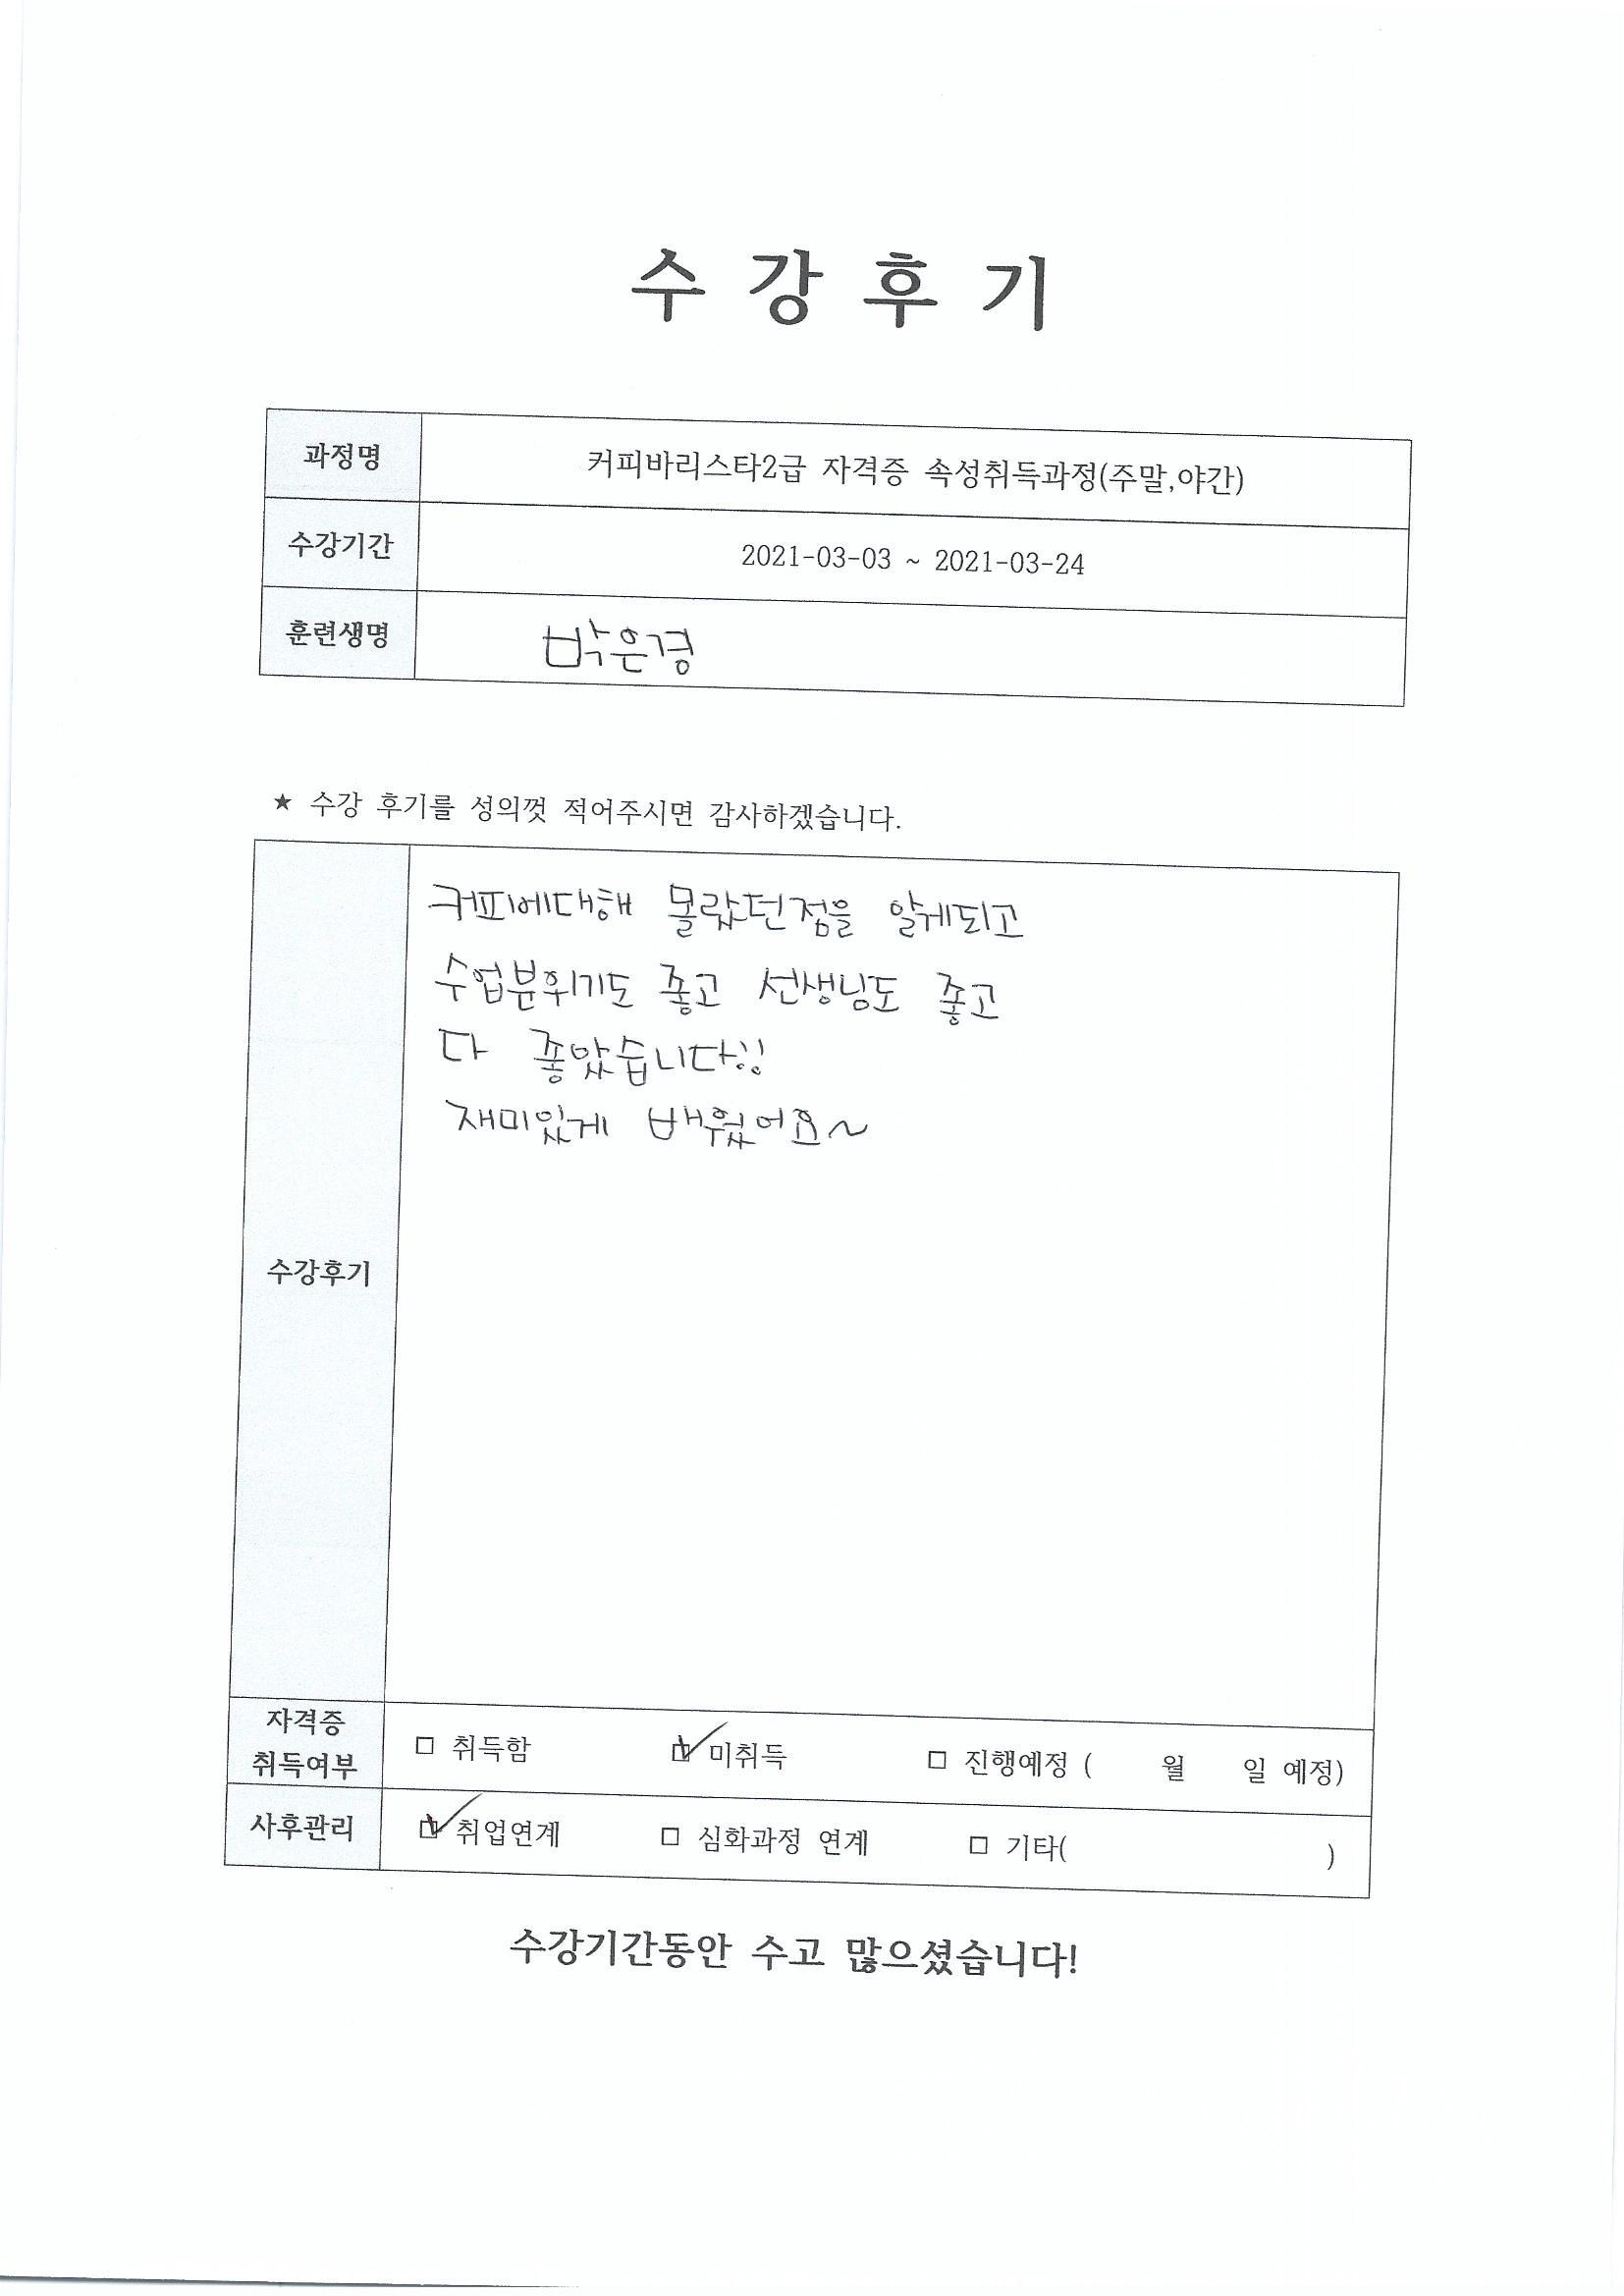 수 강 후 기
과정명 커피바리스타2급 자격증 속성취득과정(주말,야간)
수강기간 2021-03-03 ~ 2021-03-24
훈련생명 박은경
★ 수강 후기를 성의껏 적어주시면 감사하겠습니다.
수강후기
커피에대해 몰랐던점을 알게되고
수업분위기도 좋고 선생님도 좋고
다 좋았습니다!!
재미있게 배웠어요~
자격증
취득여부
□ 취득함 ☑ 미취득 □ 진행예정 ( 월 일 예정)
사후관리 ☑ 취업연계 □ 심화과정 연계 □ 기타( )
수강기간동안 수고 많으셨습니다!